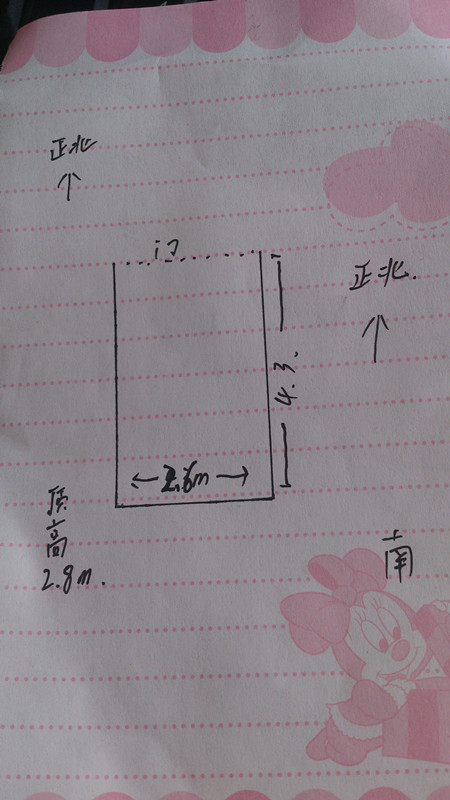 正北
门
正北.
4.3.
2.6m
顶
高
2.8m.
南